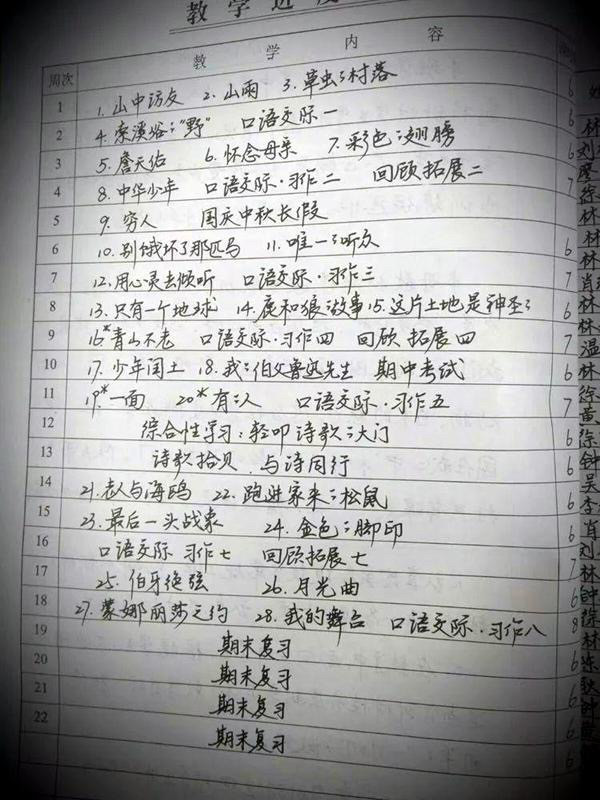 教学进度
周次 教学内容
1 1. 山中访友 2. 山雨 3. 草虫之村落 6
2 4. 索溪峪之"野" 口语交际一 6 林
3 5. 詹天佑 6. 怀念母亲 7. 彩色之翅膀 7 刘
4 8. 中华少年 口语交际·习作二 回顾拓展二 7
5 9. 穷人 国庆中秋长假 林
6 10. 别饿坏了那匹马 11. 唯一之听众 6 林
7 12. 用心灵去倾听 口语交际·习作三 7 肖
8 13. 只有一个地球 14. 鹿和狼之故事 15. 这片土地是神圣之 6 林
9 16.* 青山不老 口语交际·习作四 回顾拓展四 7 温
10 17. 少年闰土 18. 我之伯父鲁迅先生 期中考试 6 林
11 19.* 一面 20* 有之人 口语交际·习作五 7 徐
12 综合性学习:轻叩诗歌之大门 6 徐
13 诗歌拾贝 与诗同行 6 钟
14 21. 老人与海鸥 22. 跑进家来之松鼠 6 李
15 23. 最后一头战象 24. 金色之脚印 6 肖
16 口语交际 习作七 回顾拓展七 7 林
17 25. 伯牙绝弦 26. 月光曲 6 钟
18 27. 蒙娜丽莎之约 28. 我的舞台 口语交际·习作八 8 徐
19 期末复习 6 林
20 期末复习 6
21 期末复习 6 钟
22 期末复习 6